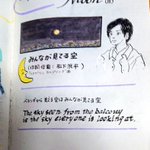 Moon
みんなが見てる空
ベランダから見える空はみんなが見てる空
The sky seen from the balcony
is the sky everyone is looking at.